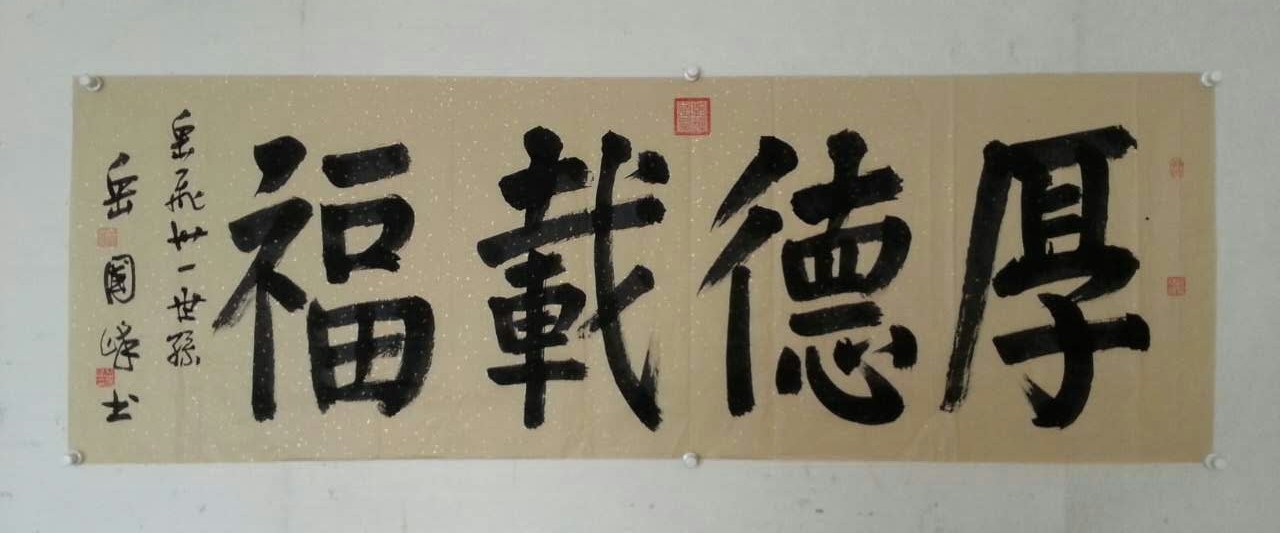 厚德載福
岳飛卅一世孫
岳國峰书